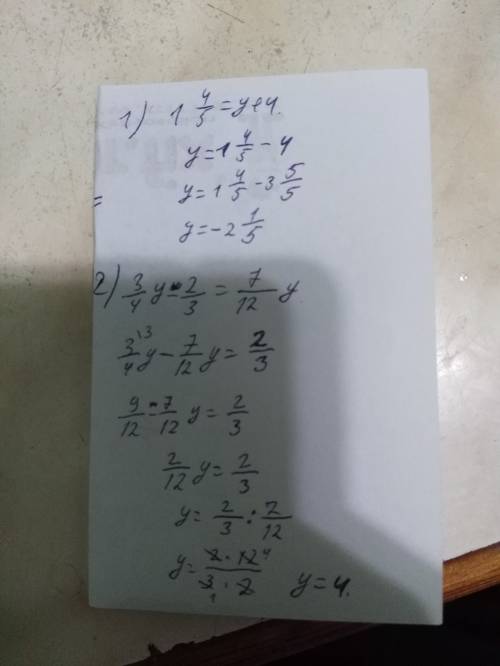 1) 1 4/5 = y+4.
y = 1 4/5 - 4
y = 1 4/5 - 3 5/5
y = -2 1/5
2) 3/4 y - 2/3 = 7/12 y.
3/4 \3 y - 7/12 y = 2/3
9/12 - 7/12 y = 2/3
2/12 y = 2/3
y = 2/3 : 2/12
y = 2 · 12 4 / 3 1 · 2 y = 4.